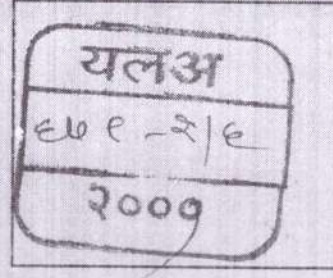 यलअ
६७९-२/६
२००१